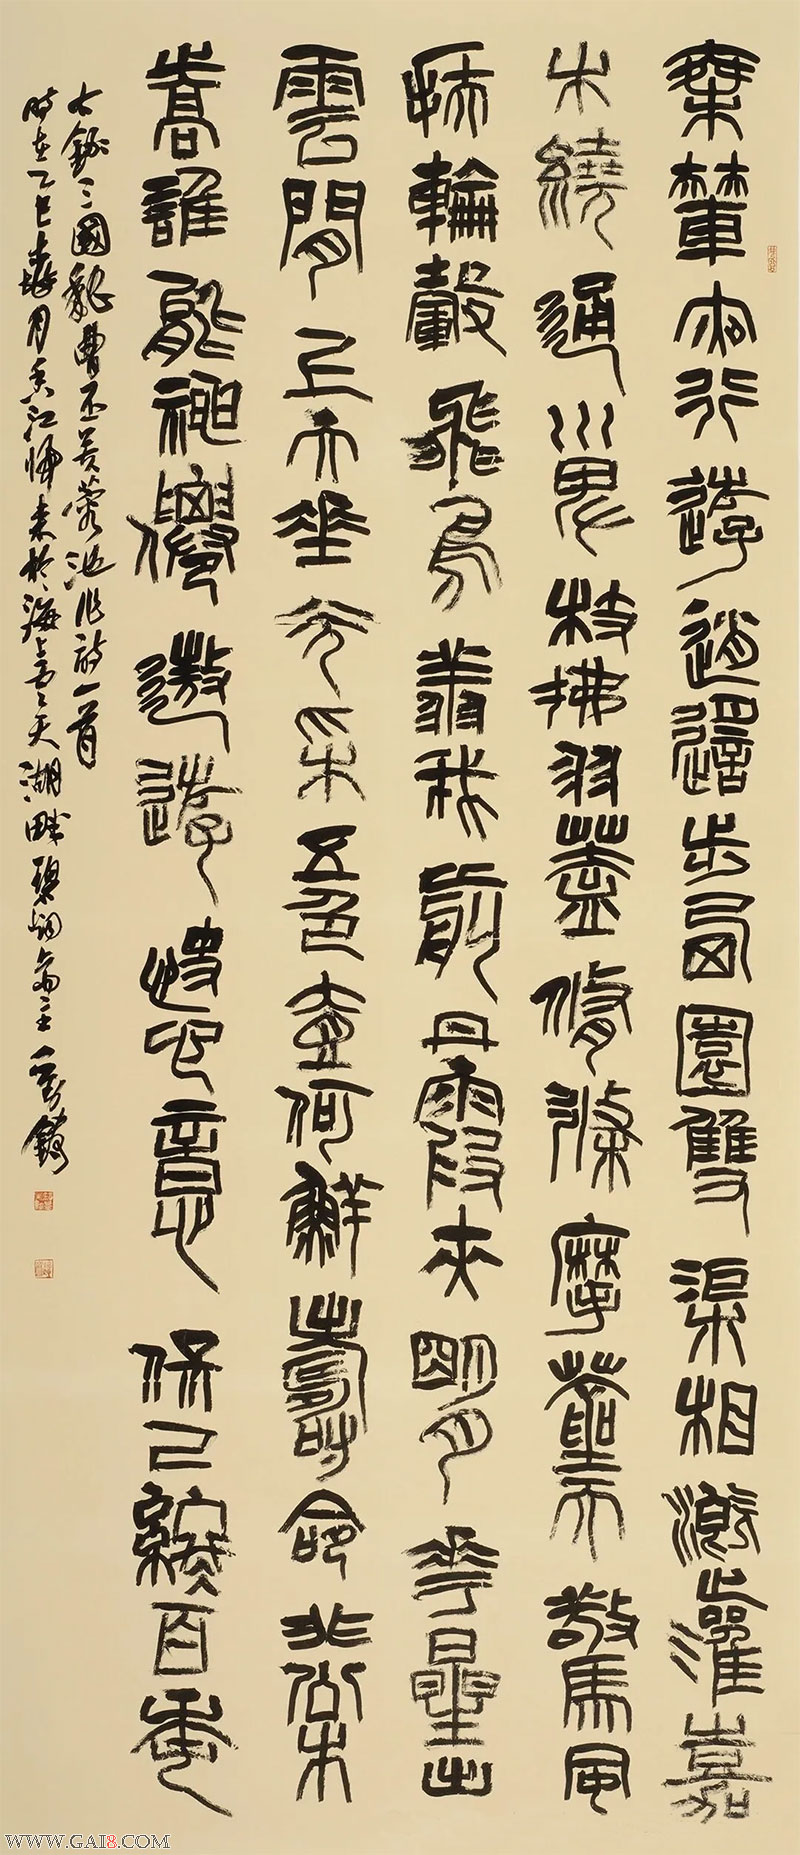 乘輦夜行遊逍遙步西園雙渠相溉灌嘉
木繞通川卑枝拂羽蓋脩條摩蒼天驚風
扶輪轂飛鳥翔我前丹霞夾明月華星出
雲間上天垂光采五色壹何鮮壽命非松
喬誰能神僊遨遊快心意保己終百年
右錄三國魏曹丕芙蓉池作詩一首
時在乙巳梅月香江歸來於海上天湖畔碧齋主
WWW.GAI8.COM